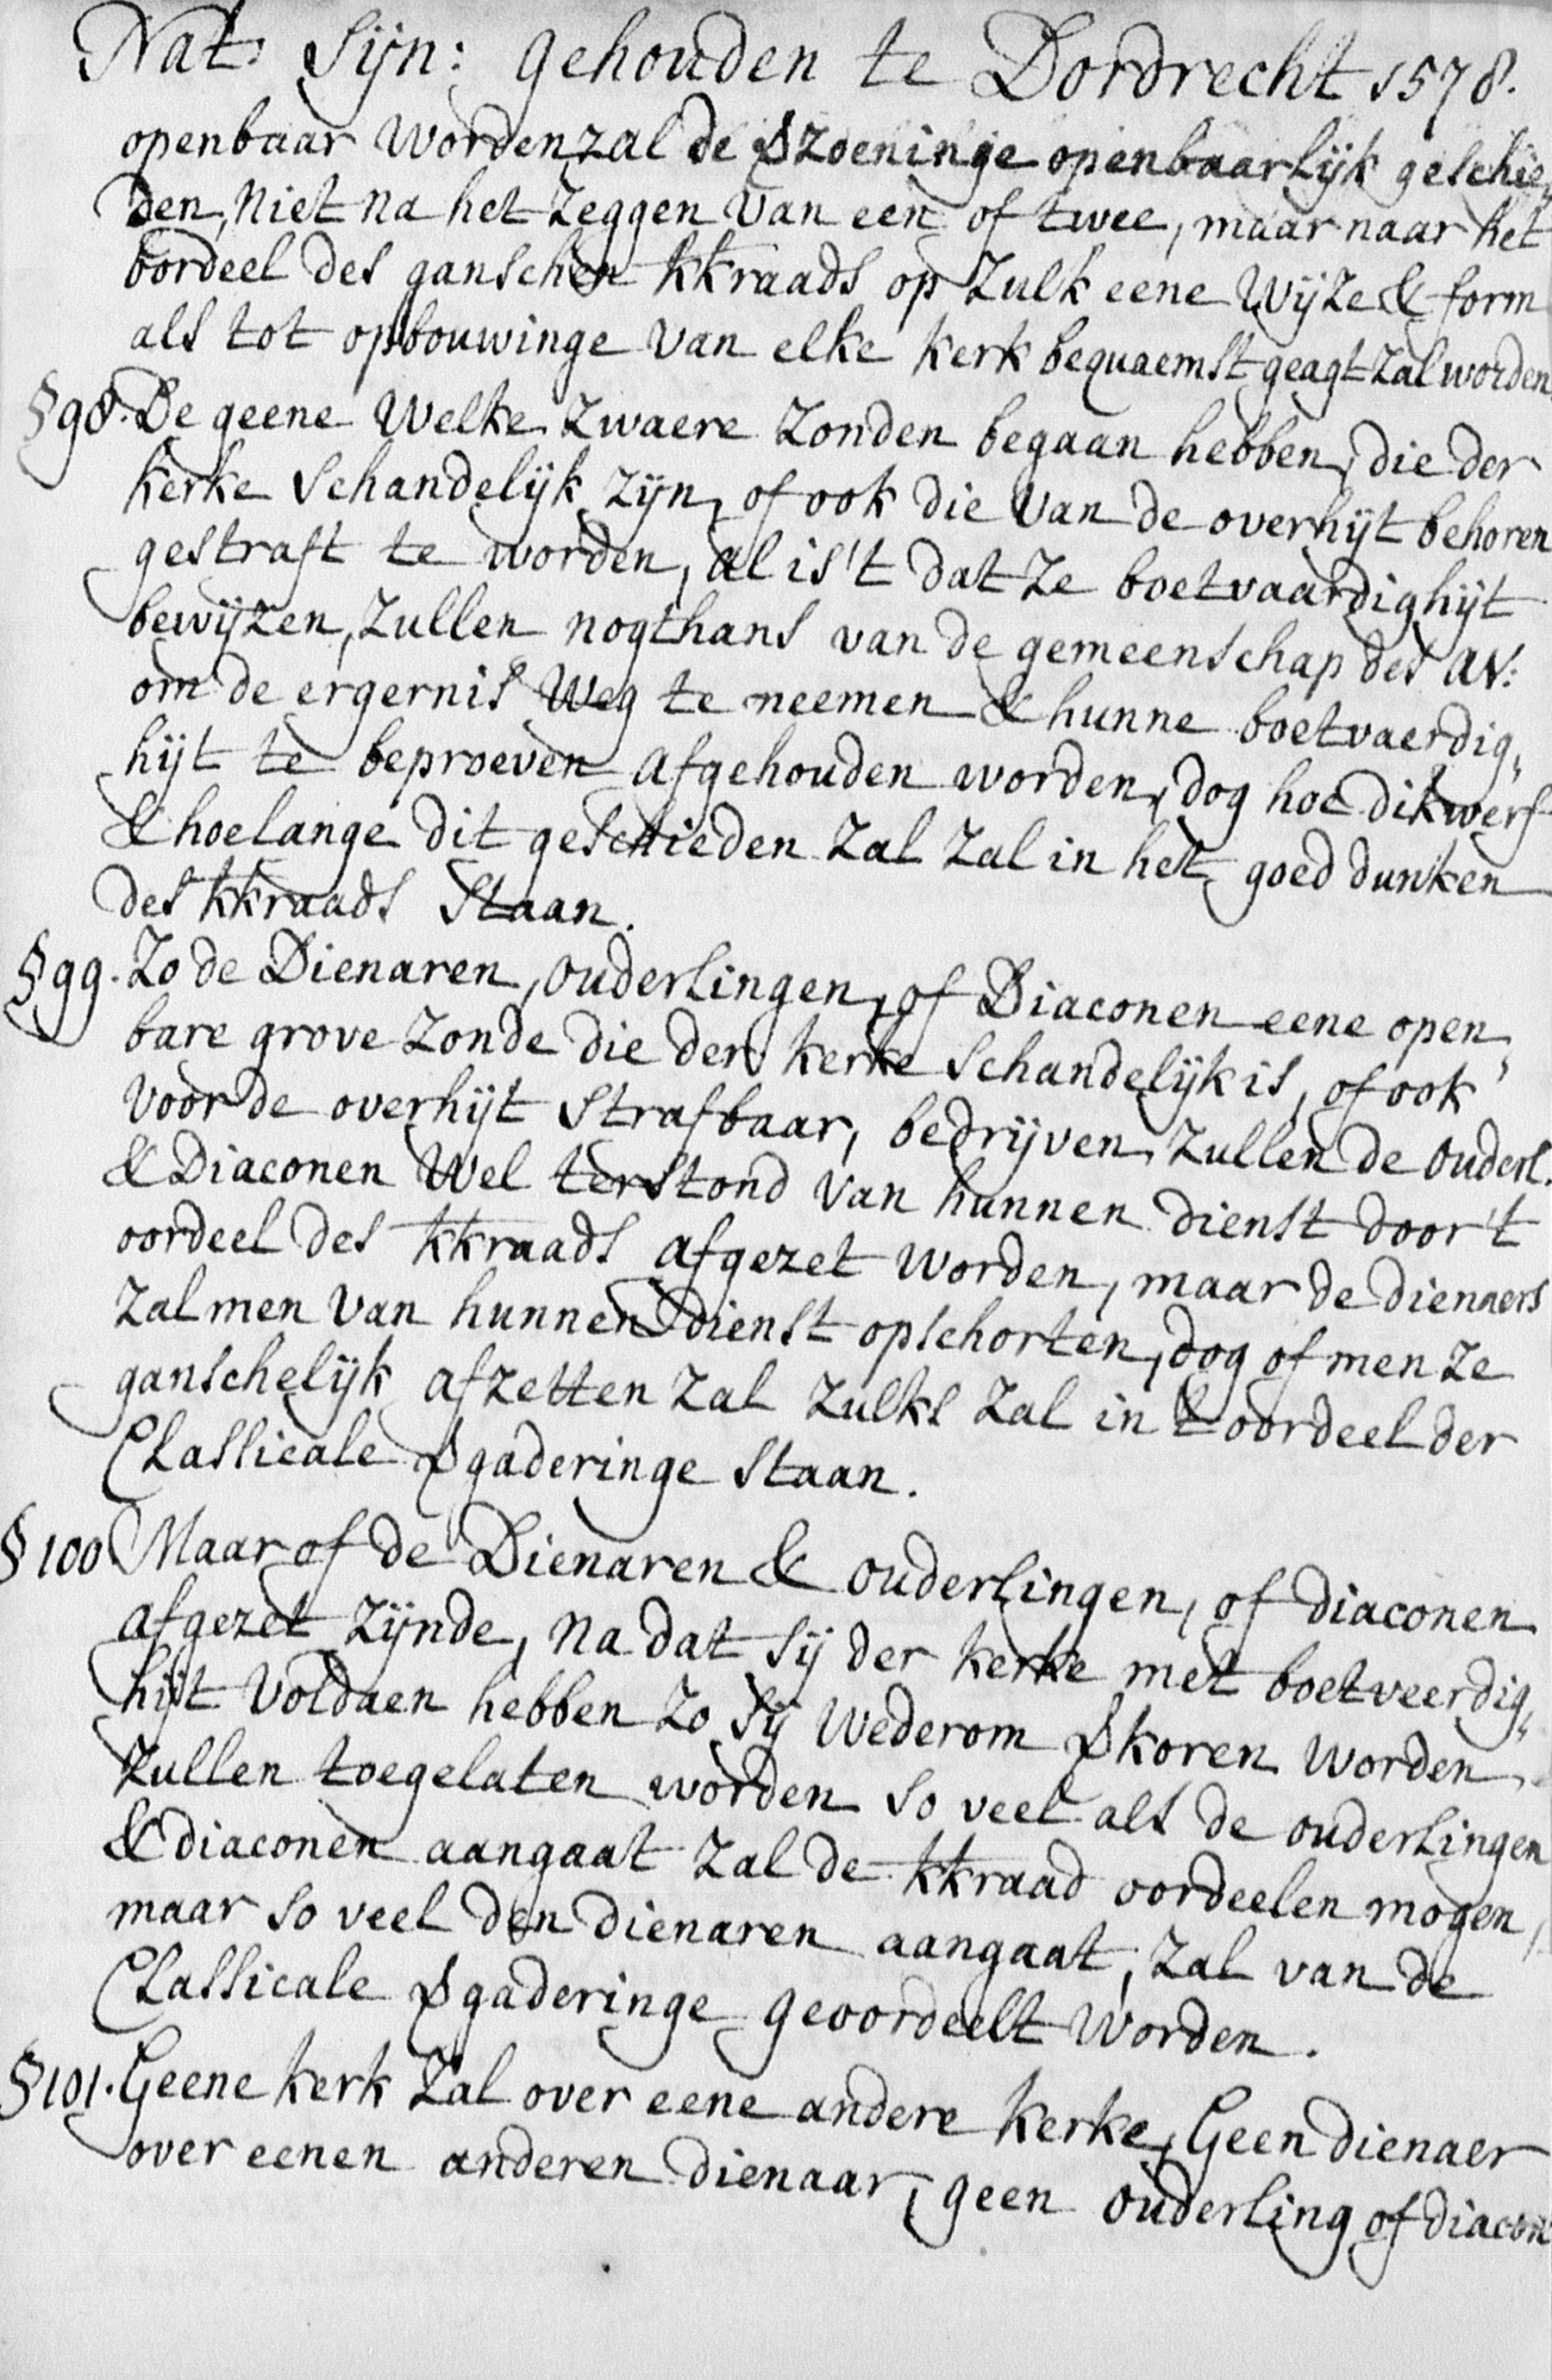 Nat: Sijn: gehouden te Dordrecht 1578.
openbaar worden zal de Vzoeninge openbaarlijk geschie„
den, niet na het zeggen van een of twee, maar naar het
oordeel des ganschen kkraads op zulk eene wijze & form
als tot opbouwinge van elke kerk bequaemst geagt zal worden
§98. De geene welke zwaere zonden begaan hebben, die der
kerke schandelijk zijn, of ook die van de overhijt behoren
gestraft te worden, al is't dat ze boetvaardighijt
bewijzen, zullen nogthans van de gemeenschap des AV:
om de ergernis weg te neemen & hunne boetvaerdig„
hijt te beproeven afgehouden worden, dog hoe dikwerf
& hoelange dit geschieden zal zal in het goeddunken
des kkraads staan.
§99. Zo de Dienaren, ouderlingen, of Diaconen eene open„
bare grove zonde die der kerke schandelijk is, of ook
voor de overhijt strafbaar, bedrijven, zullen de ouderl.
& Diaconen wel terstond van hunnen dienst door't
oordeel des kkraads afgezet worden, maar de dienaers
zal men van hunnen dienst opschorten, dog of men ze
ganschelijk afzetten zal zulks zal in t oordeel der
Classicale Vgaderinge staan.
§100 Maar of de Dienaren & ouderlingen, of diaconen
afgezet zijnde, na dat sij der kerke met boetveerdig„
hijt voldaen hebben zo sij wederom Vkoren worden,
zullen toegelaten worden so veel als de ouderlingen
& diaconen aangaat zal de kkraad oordeelen mogen,
maar so veel den dienaren aangaat, zal van de
Classicale Vgaderinge geoordeelt worden.
§101. Geene kerk zal over eene andere kerke, Geen dienaer
over eenen anderen dienaar, geen ouderling of diacon